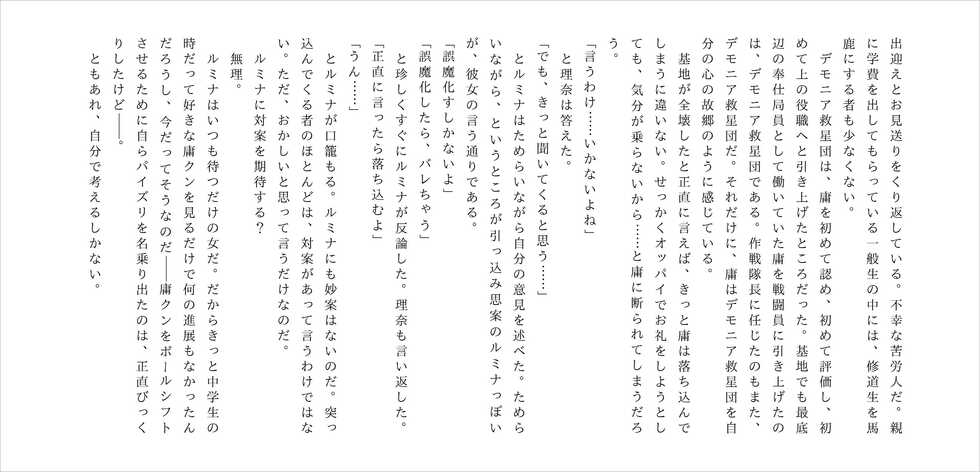 出迎えとお見送りをくり返している。不幸な苦労人だ。親
に学費を出してもらっている一般生の中には、修道生を馬
鹿にする者も少なくない。
　デモニア救星団は、庸を初めて認め、初めて評価し、初
めて上の役職へと引き上げたところだった。基地でも最底
辺の奉仕局員として働いていた庸を戦闘員に引き上げたの
は、デモニア救星団である。作戦隊長に任じたのもまた、
デモニア救星団だ。それだけに、庸はデモニア救星団を自
分の心の故郷のように感じている。
　基地が全壊したと正直に言えば、きっと庸は落ち込んで
しまうに違いない。せっかくオッパイでお礼をしようとし
ても、気分が乗らないから……と庸に断られてしまうだろ
う。
「言うわけ……いかないよね」
　と理奈は答えた。
「でも、きっと聞いてくると思う……」
　とルミナはためらいながら自分の意見を述べた。ためら
いながら、というところが引っ込み思案のルミナっぽい
が、彼女の言う通りである。
「誤魔化すしかないよ」
「誤魔化したら、バレちゃう」
　と珍しくすぐにルミナが反論した。理奈も言い返した。
「正直に言ったら落ち込むよ」
「うん……」
　とルミナが口籠もる。ルミナにも妙案はないのだ。突っ
込んでくる者のほとんどは、対案があって言うわけではな
い。ただ、おかしいと思って言うだけなのだ。
　ルミナに対案を期待する？
　無理。
　ルミナはいつも待つだけの女だ。だからきっと中学生の
時だって好きな庸クンを見るだけで何の進展もなかったん
だろうし、今だってそうなのだ――庸クンをポールシフト
させるために自らパイズリを名乗り出たのは、正直びっく
りしたけど――。
　ともあれ、自分で考えるしかない。